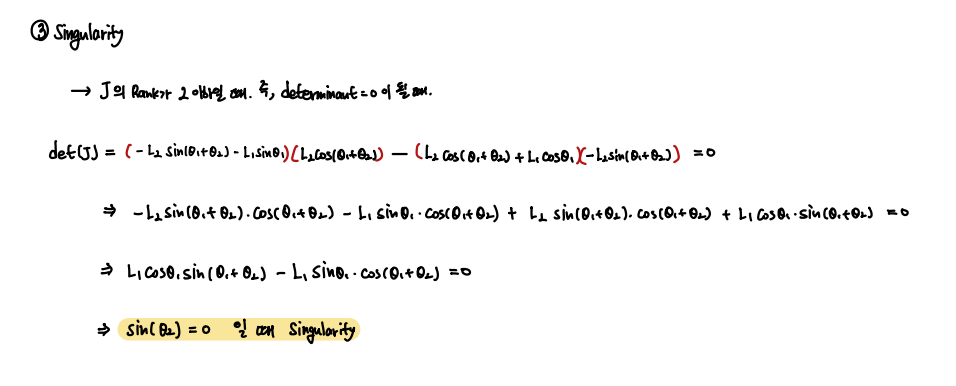 ③ Singularity
→ J의 Rank가 2 이하일 때. 즉, determinant = 0 이 될 때.
det(J) = (-L₂ sin(θ₁+θ₂) - L₁sinθ₁)(L₂cos(θ₁+θ₂)) - (L₂ cos(θ₁+θ₂) + L₁cosθ₁)(-L₂sin(θ₁+θ₂)) = 0
⇒ -L₂sin(θ₁+θ₂)·cos(θ₁+θ₂) - L₁ sinθ₁·cos(θ₁+θ₂) + L₂ sin(θ₁+θ₂)·cos(θ₁+θ₂) + L₁cosθ₁·sin(θ₁+θ₂) = 0
⇒ L₁cosθ₁sin(θ₁+θ₂) - L₁sinθ₁·cos(θ₁+θ₂) = 0
⇒ sin(θ₂) = 0 일 때 Singularity